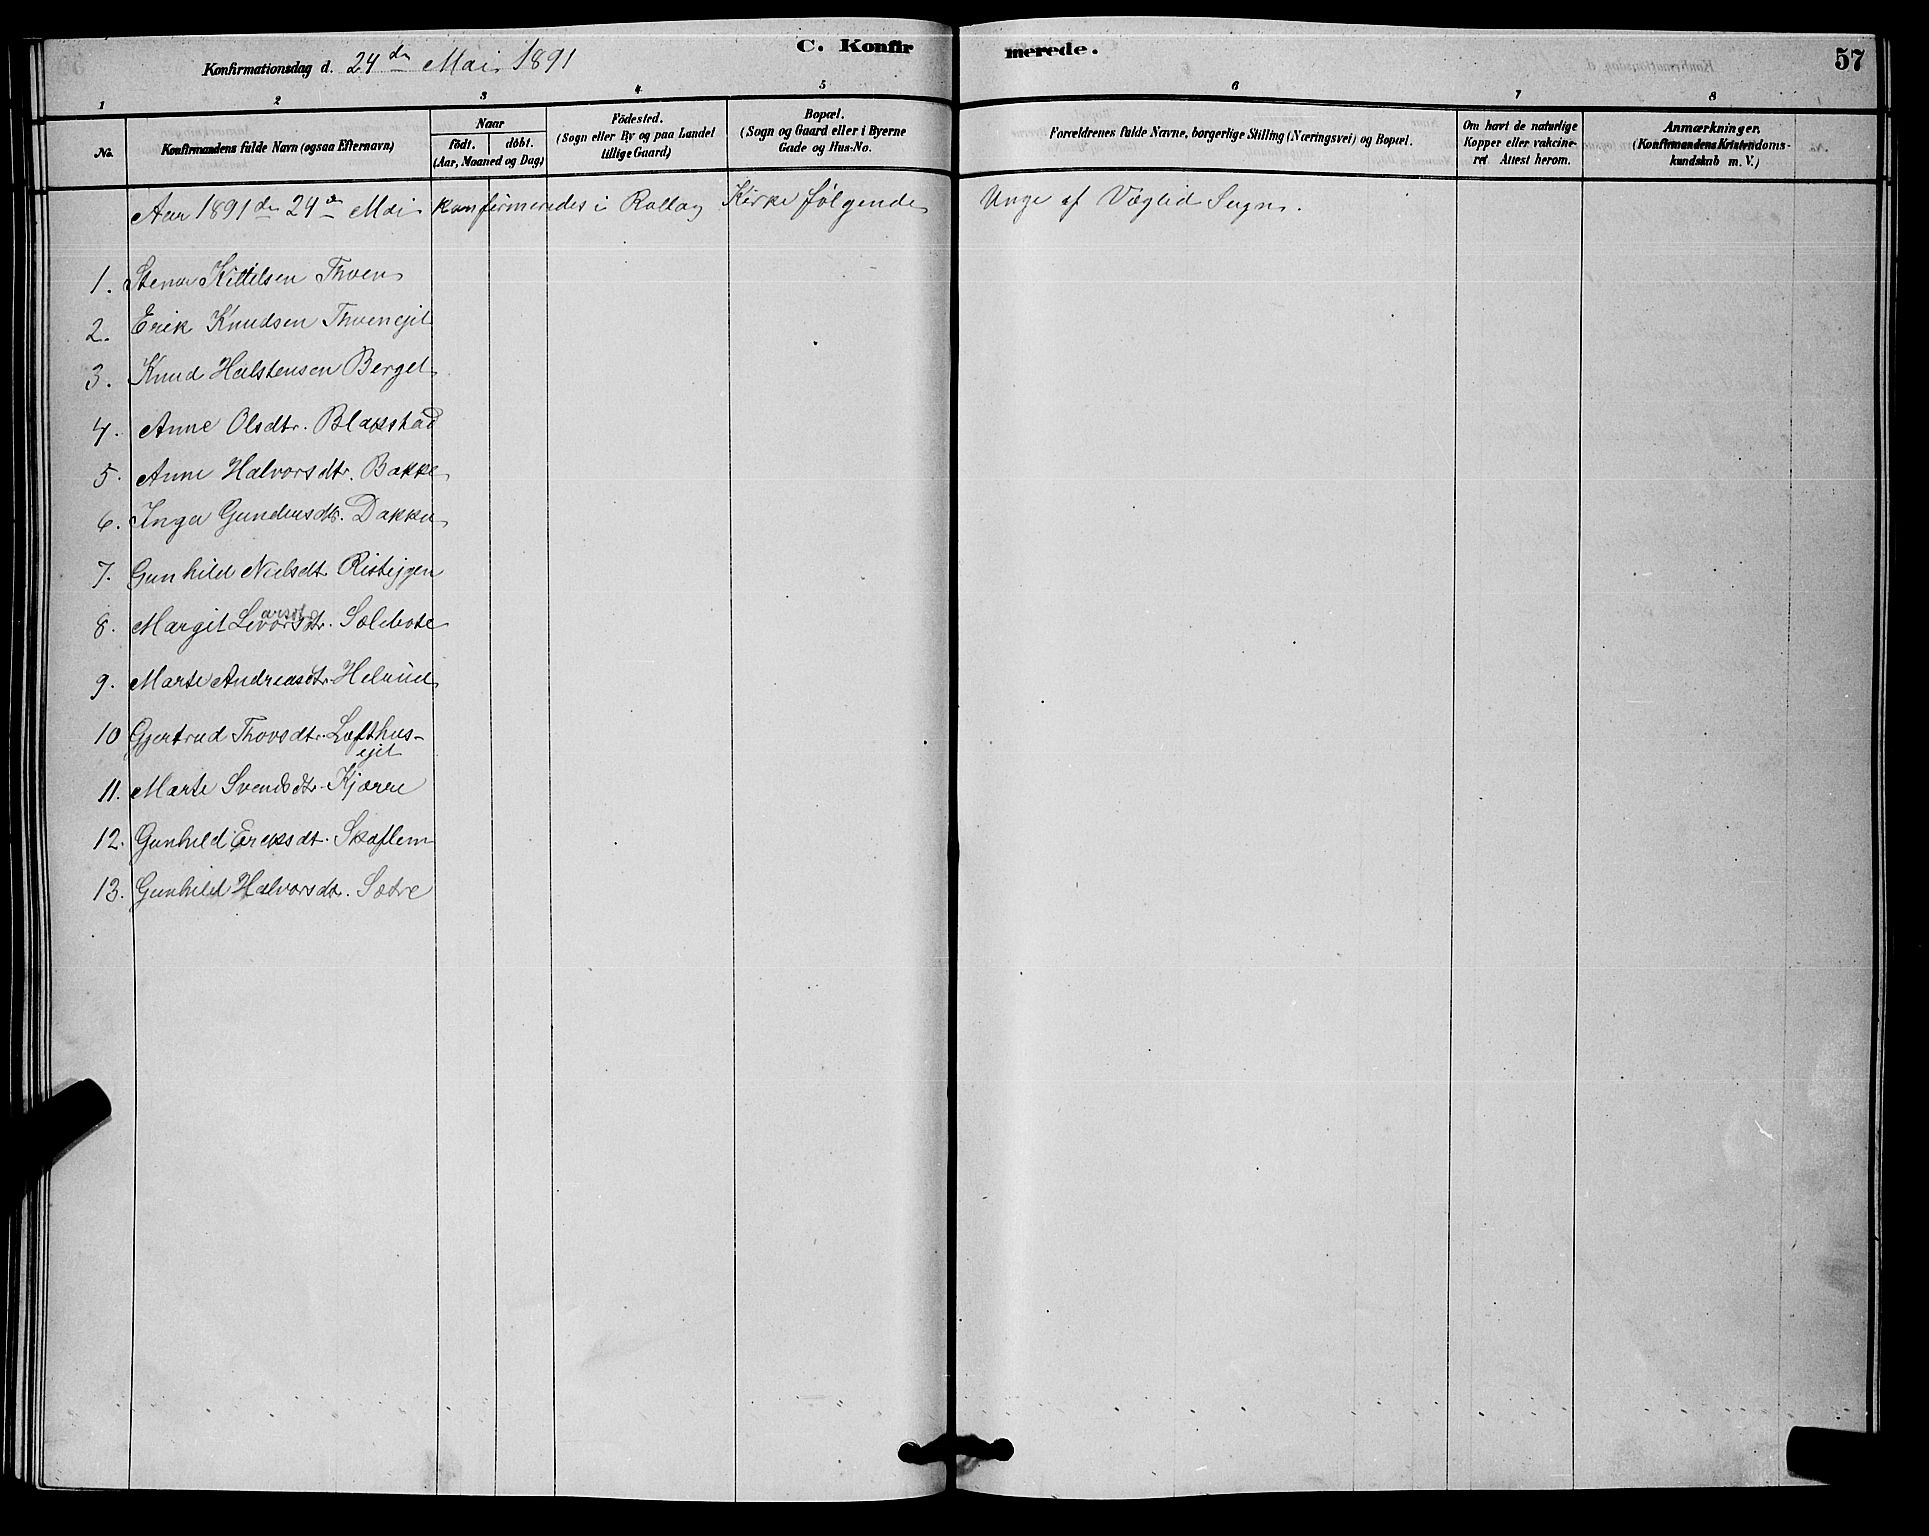 C. Konfirmerede.
57
Konfirmationsdag d. 24de Mai 1891
1 2 3 4 5 6 7 8
No.
Konfirmandens fulde Navn (ogsaa Efternavn)
Naar
födt. döbt.
(Aar, Maaned og Dag)
Födested.
(Sogn eller By og paa Landet
tillige Gaard)
Bopæl.
(Sogn og Gaard eller i Byerne
Gade og Hus-No.
Forældrenes fulde Navne, borgerlige Stilling (Næringsvei) og Bopæl.
Om havt de naturlige
Kopper eller vakcine-
ret Attest herom.
Anmærkninger.
(Konfirmandens Kristendoms-
kundskab m. V.)
Aar 1891 den 24de Mai konfirmeredes i Rollag Kirke følgende Unge af Væglid Sogn.
1. Stenar Kittilsen Thoen
2. Erik Knudsen Thoenejet
3. Knud Halstensen Berget
4. Anne Olsdtr. Blakstad
5. Anne Halvorsdtr. Bakke
6. Inga Gundersdtr. Dakku
7. Gunhild Nielsdt. Risteigen
8. Margit Levorsdtr. Sølebote
9. Marte Andreasdtr. Helrud
10 Gjertrud Thovsdtr. Lofthus-
ejet
11. Marte Svendsdtr. Kjærre
12. Gunhild Eriksdt. Skaflem
13. Gunhild Halvorsdtr. Sætre